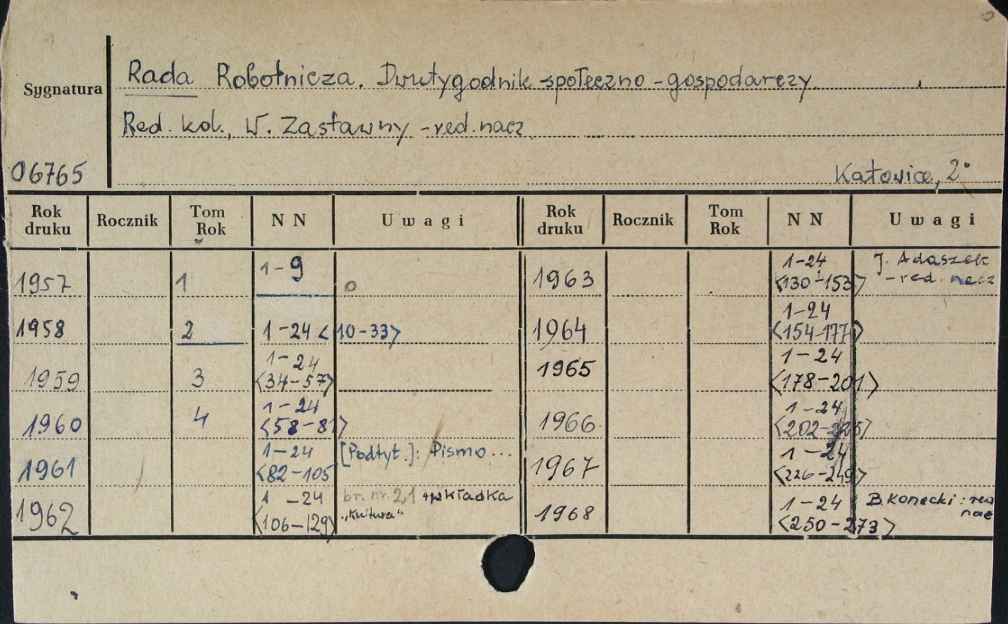 Sygnatura
Rada Robotnicza. Dwutygodnik społeczno-gospodarczy
Red. kol., W. Zastawny - red. nacz
06765
Katowice, 2°
Rok druku Rocznik Tom Rok NN Uwagi Rok druku Rocznik Tom Rok NN Uwagi
1957 1 1-9
1958 2 1-24 <10-33>
1959 3 1-24 <34-57>
1960 4 1-24 <58-81>
1961 1-24 <82-105 [Podtyt.]: Pismo...
1962 1-24 <106-129> br. nr. 21 + wkładka "Kultura"
1963 1-24 <130-153> J. Adaszek - red. nacz
1964 1-24 <154-177>
1965 1-24 <178-201>
1966 1-24 <202-225>
1967 1-24 <226-249>
1968 1-24 <250-273> B. Konecki: red nac